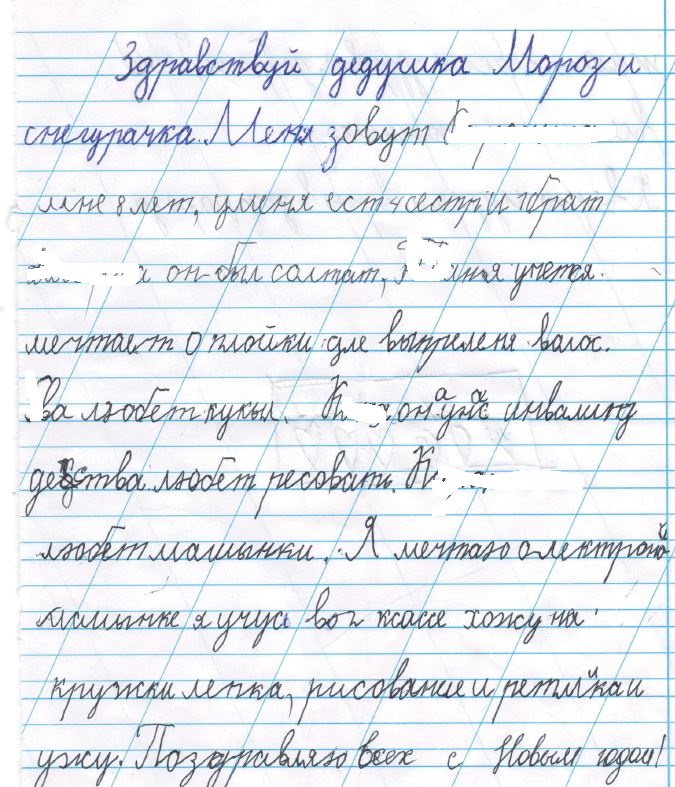 Здравствуй дедушка Мороз и
снегурачка. Меня зовут К
мне 8 лет, у меня ест 4 сестри 1 брат
а он был солтат, Т аня учется.
мечтает о плойки для выпреленя валос.
ва любет куклы. К она у нас инвалинд
детства любет ресовать. К
любет машынки. Я мечтаю о лектроной
машынке я учус во 2 классе хожу на
кружки лепка, рисование и ретмика и
ужу. Поздравляю всех с Новым годом!